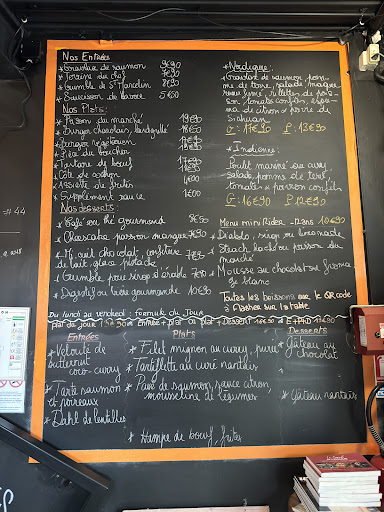 Nos Entrées
* Gravlax de saumon 9€90
* Terrine du chef 7€90
* Crumble de St Marcelin 8€90
* Saucisson de Savoie 5€00
Nos Plats:
* Poisson du marché 19€90
* Burger
* Burger végétarien
* Pièce du boucher
* Tartare de bœuf
* Côte de cochon
* Assiette de frites 4€00
* Supplément sauce 1€00
Nos desserts:
* Café ou thé gourmand 8€50
* Cheesecake passion mangue 7€90
* Mi cuit chocolat, confiture de lait, glace 7€90
* Crumble poire sirop d'érable 7€00
* Digestif ou bière gourmande 10€90
* Nordique:
Gravlax de saumon, pomme de terre, salade, mangue
tomates confites,
de citron et poivre de Sichuan
G: 17€90 P: 13€90
* Indienne:
Poulet mariné au curry,
salade, pommes de terre,
tomates et poivron confits
G: 16€90 P: 12€90
Menu mini Rides -12ans 10€90
* Diabolo, sirop ou limonade
* Steack haché ou poisson du marché
* Mousse au chocolat ou fromage blanc
Toutes les boissons sur le QR code
à flasher sur la table
Du lundi au vendredi : formule du Jour
plat du jour Entrée + plat ou plat + dessert E+P+D
Entrées
* Velouté de butternut coco-curry
* Tarte saumon et poireaux
* Dahl de lentilles
Plats
* Filet mignon au curry, purée
* Tartiflette au curé nantais
* Pavé de saumon, sauce citron, mousseline de légumes
* Hampe de bœuf, frites
Desserts
* Gâteau au chocolat
* Gâteau nantais